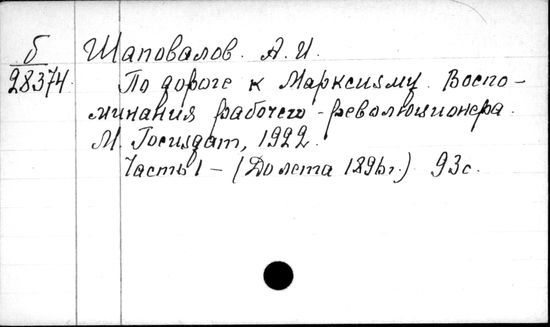 б
28374
Шаповалов. А. И.
По дороге к Марксизму. Воспо-
минания рабочего-революционера.
М. Госиздат, 1922.
Часть 1 - (До лета 1896г.) 93с.